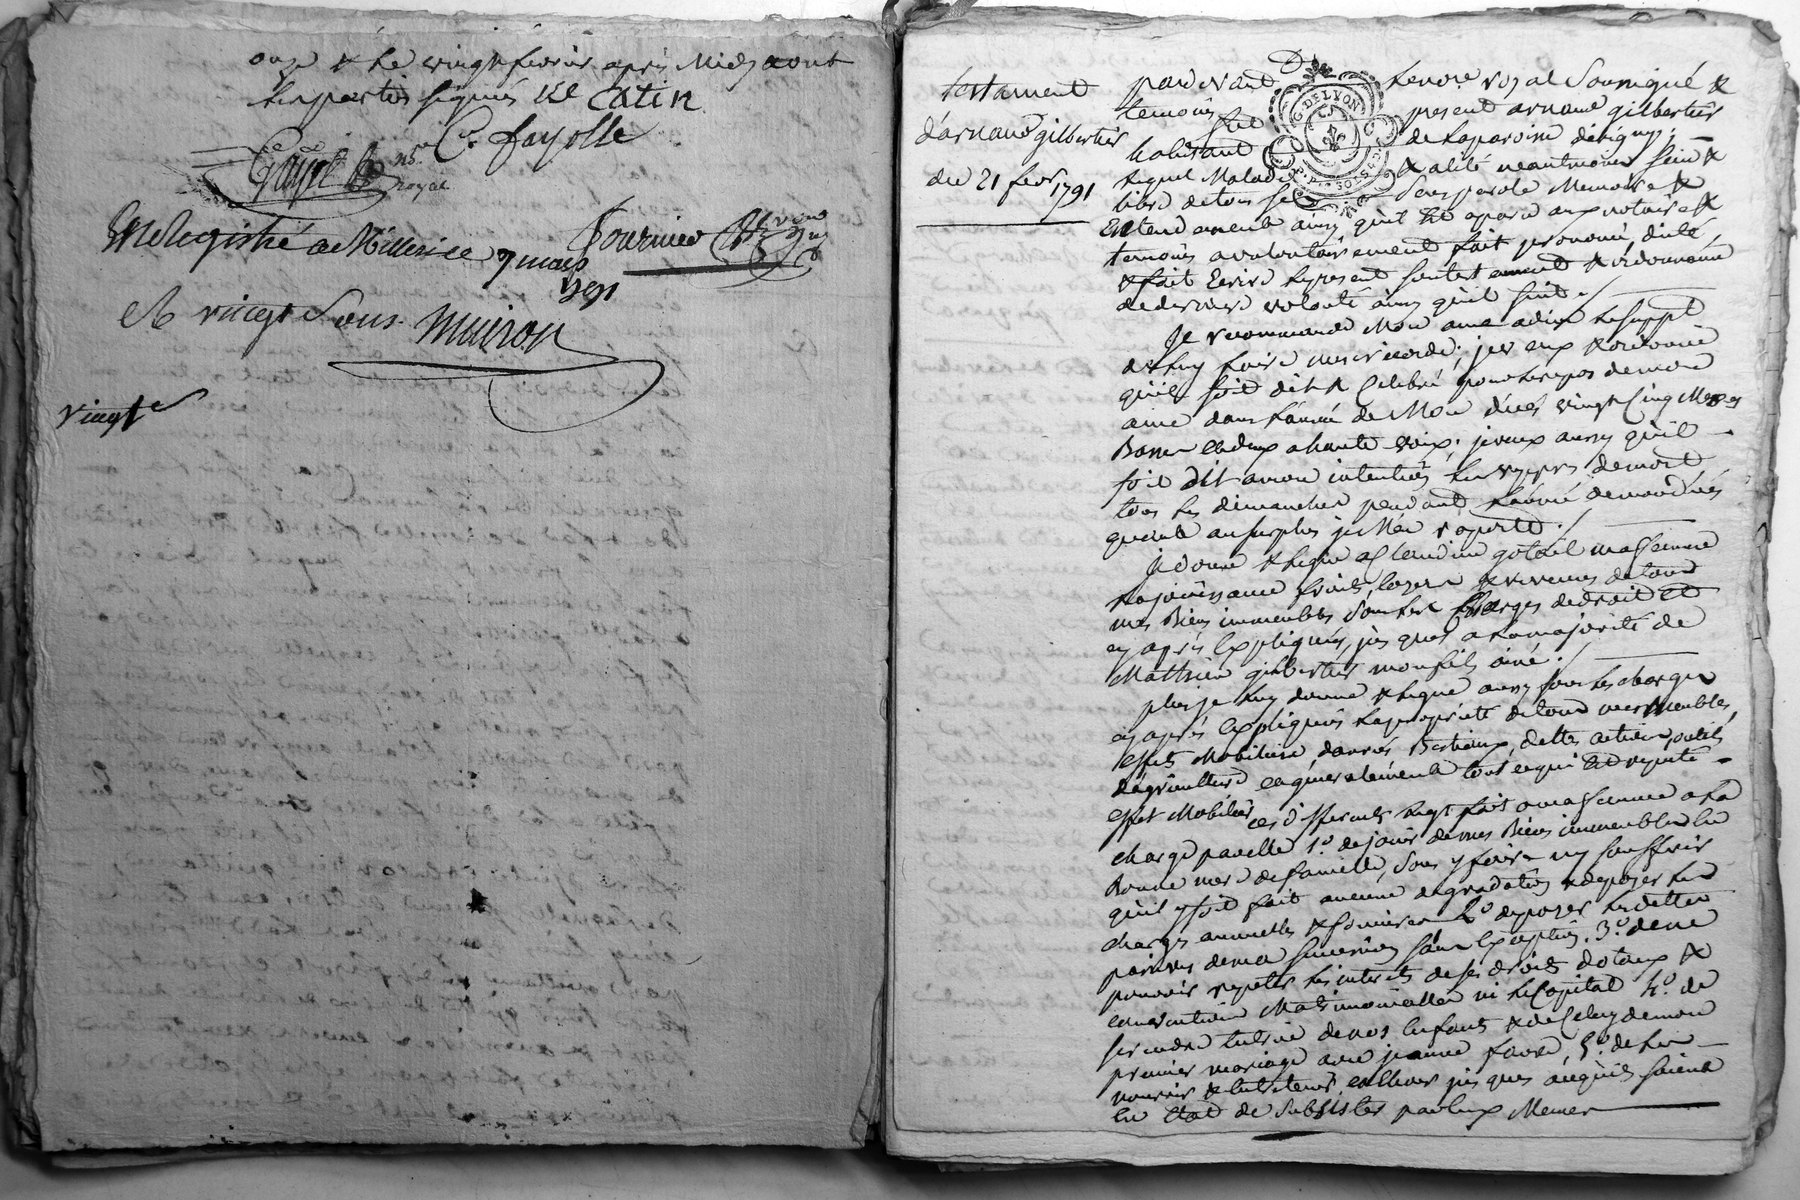 onze & le vingt fevrier après Midy aont
les parties signés 
C. fayolle
royal
Enregistré a Millery le 7 mars
1791
R vingt Sous. Muiron
vingt
testament
d'arnaud gilbertier
du 21 fevr 1791
DE LYON
pardevant le no.re royal Soussigné &
temoins present arnaud gilbertier
habitant de la paroisse
lequel Malade & alité neantmoins sain &
libre de tous ses Sens parole Memoire &
Entendement ainsy qu'il est aparu aux notaire &
temoins a volontairement fait prononcé, dicté,
& fait Ecrire le present testament & ordonnance
de derniere volonté ainsy qu'il suit./
Je recommande Mon ame a dieu le suppl
de luy faire misericorde; je veux & ordonne
qu'il soit dit & Celebré pour le repos de mon
ame dans l'année de Mon décés vingt Cinq Messes
Basses et deux a haute voix; je veux aussy qu'il
soit dit a mon intention les vepres de mort
tous les dimanches pendant l'année de mon décés
quant au surplus je M'en raporte./
Je donne & legue a Claudine ma femme
la jouissance fruits, & revenus de tous
mes Biens immeubles sous les Charges de droit et
cy après Expliquées, jusques a la majorité de
Mathieu gilbertier mon fils ainé./
plus je luy donne & legue aussy sous les charges
cy après Expliquées la proprieté de tous mes Meubles,
effets Mobiliers, danrées Bestiaux, dettes actives, outils
d'agriculture et géneralement tout ce qui est reputé
effet Mobilier ces differents legs fait a ma femme a la
charge par elle 1.° de jouir de mes Biens immeubles en
Bonne mere de famille, sans y faire ny souffrir
qu'il y soit fait aucune degradation & de payer les
charges annuelles & foncieres 2.° de payer les dettes
passives de ma succession sans Exception. 3.° de ne
pouvoir repeter les interets de ses droits dotaux &
conventions Matrimonialles ni le Capital 4.° de
prendre de nos Enfants & de Celuy de mon
premier mariage avec jeanne favre, 5.° de les
nourrir & Entretenir et Elever jusques a ce qu'ils soient
En Etat de Subsister par Eux Memes